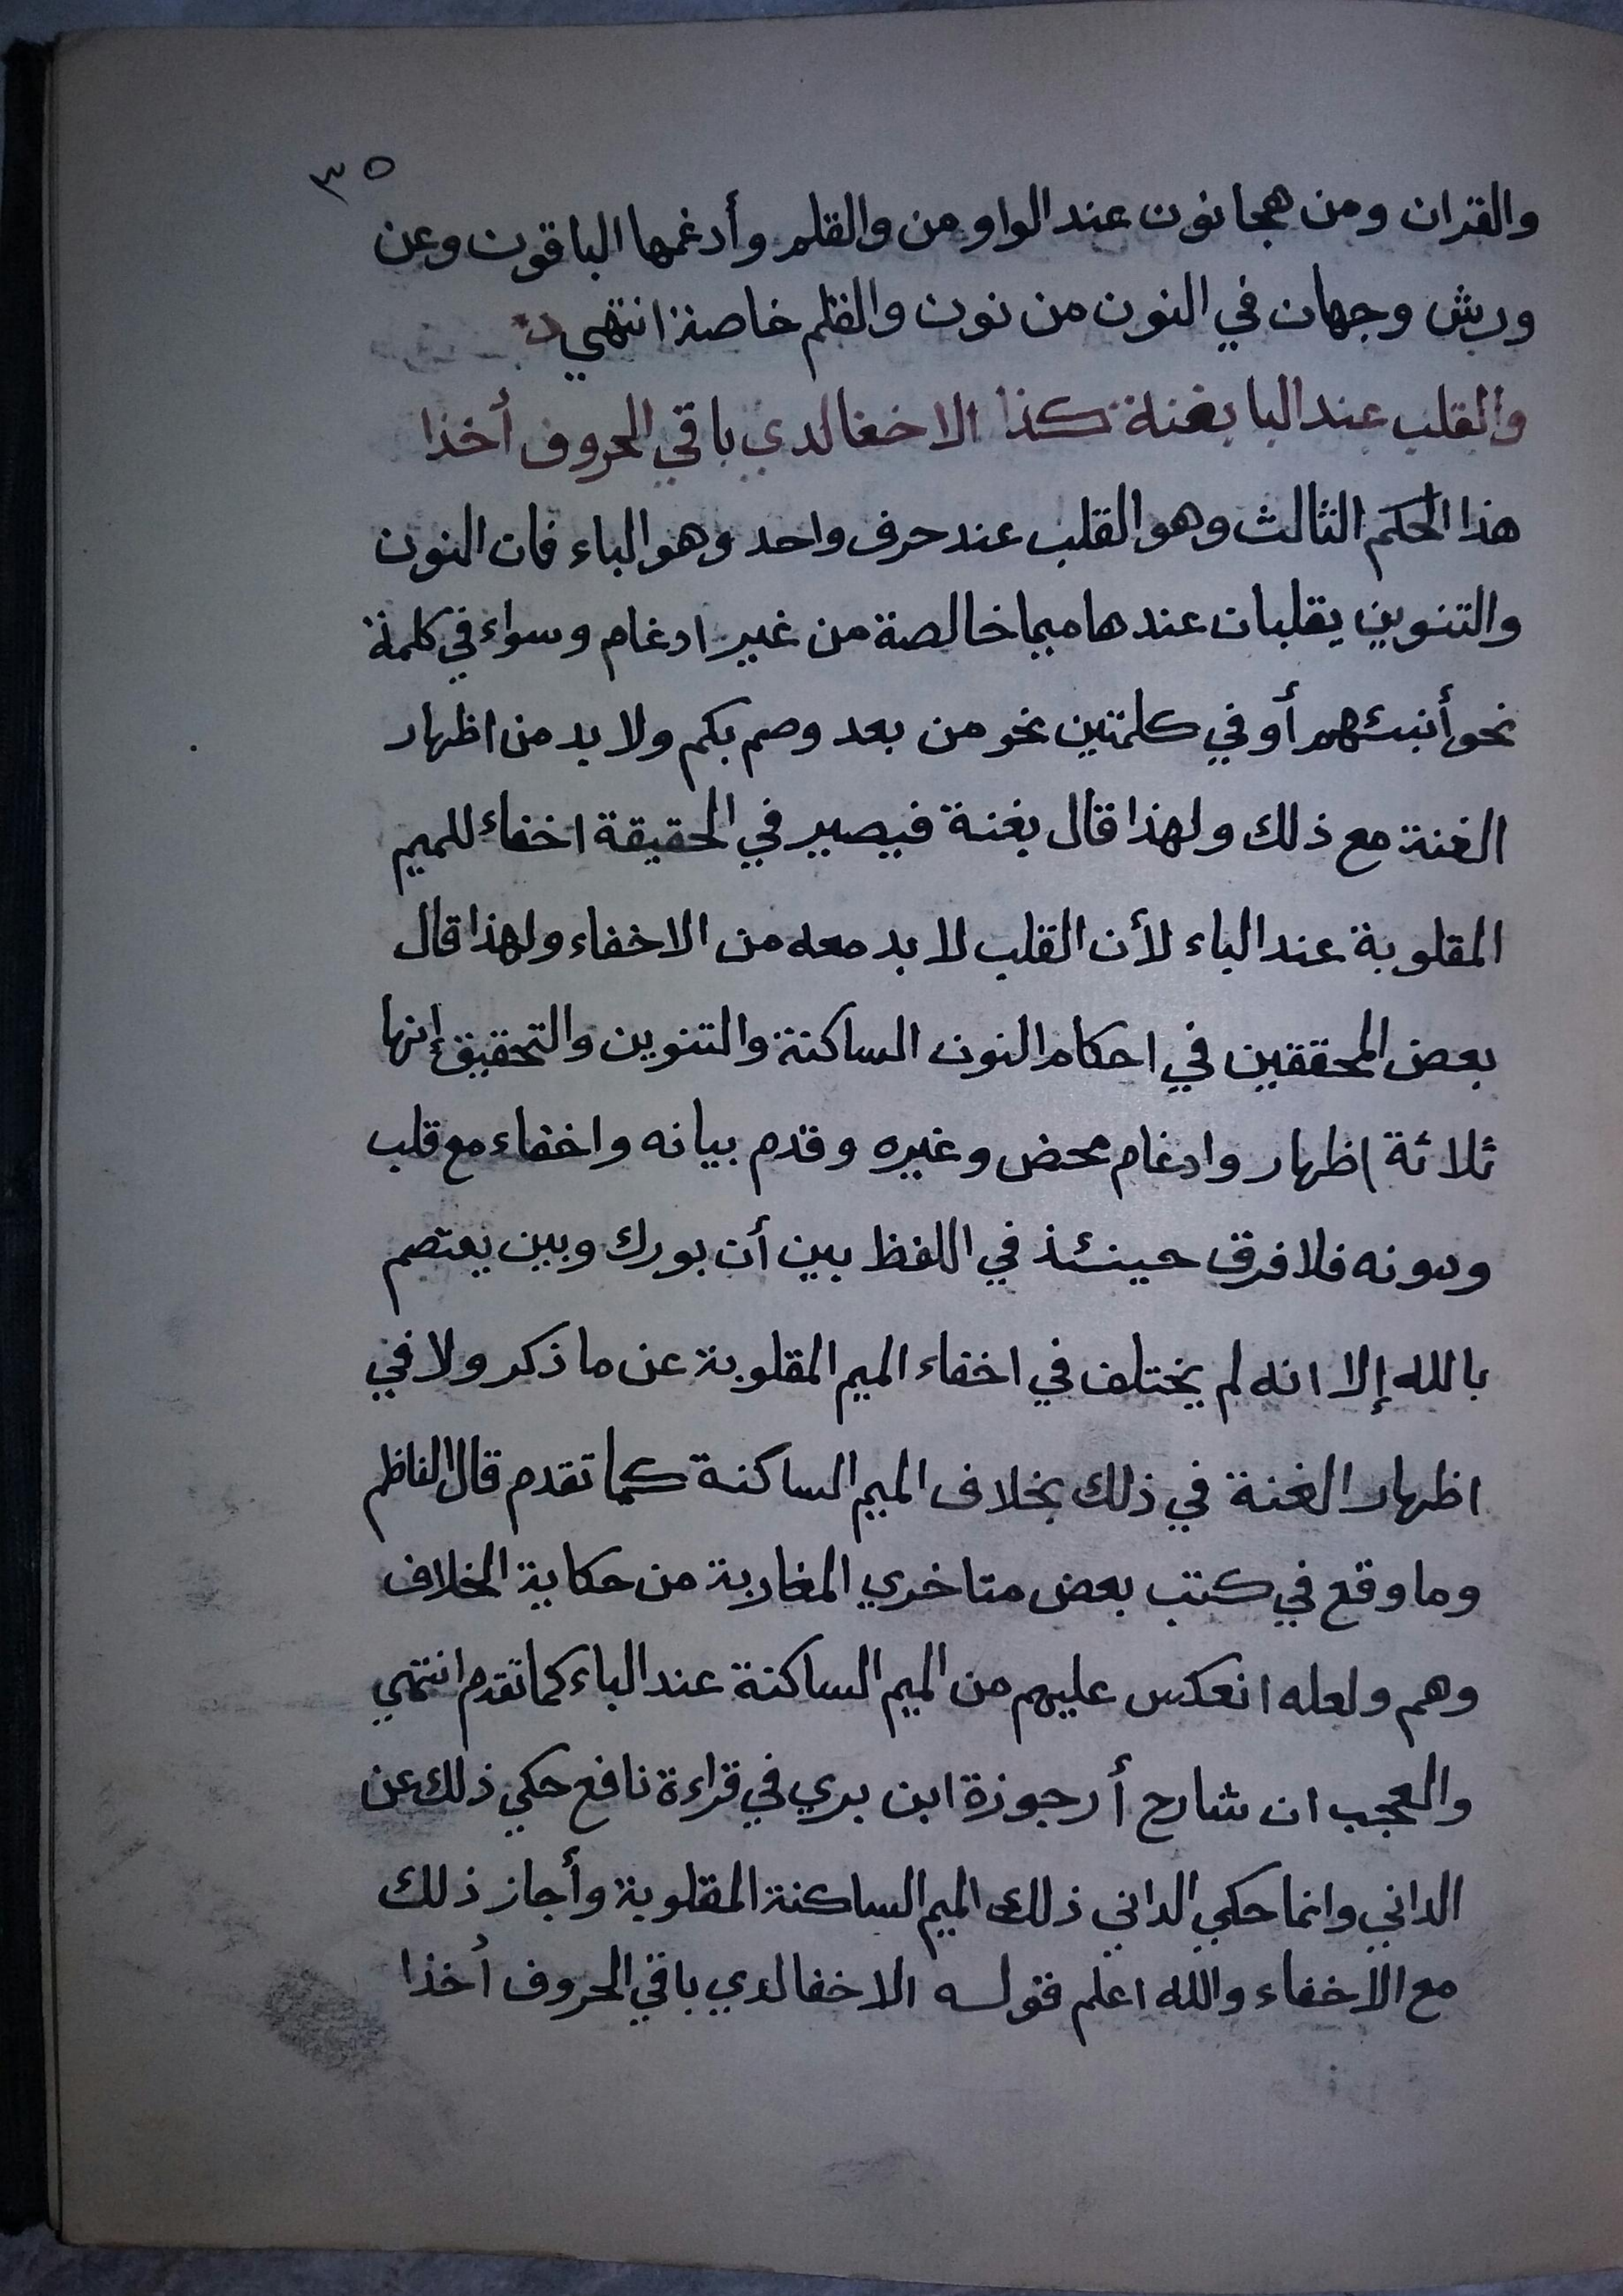 ٣٥
والقران ومن هجا نون عند الواو من والقلم وأدغمها الباقون وعن
ورش وجهان في النون من نون والقلم خاصة انتهي
والقلب عند البا بغنة كذا الاخفا لدي باقي الحروف أخذا
هذا الحكم الثالث وهو القلب عند حرف واحد وهو الباء فان النون
والتنوين يقلبان عندها ميما خالصة من غير ادغام وسواء في كلمة
نحو أنبئهم أو في كلمتين نحو من بعد وصم بكم ولا بد من اظهار
الغنة مع ذلك ولهذا قال بغنة فيصير في الحقيقة اخفاء للميم
المقلوبة عند الباء لأن القلب لا بد معه من الاخفاء ولهذا قال
بعض المحققين في احكام النون الساكنة والتنوين والتحقيق إنها
ثلاثة إظهار وادغام محض وغيره وقدم بيانه واخفاء مع قلب
ودونه فلا فرق حينئذ في اللفظ بين أن بورك وبين يعتصم
بالله إلا انه لم يختلف في اخفاء الميم المقلوبة عن ما ذكر ولا في
اظهار الغنة في ذلك بخلاف الميم الساكنة كما تقدم قال الناظم
وما وقع في كتب بعض متاخري المغاربة من حكاية الخلاف
وهم ولعله انعكس عليهم من الميم الساكنة عند الباء كما تقدم انتهي
والعجب ان شارح أرجوزة ابن بري في قراءة نافع حكي ذلك عن
الداني وانما حكي الداني ذلك الميم الساكنة المقلوبة وأجاز ذلك
مع الاخفاء والله اعلم فقوله الاخفا لدي باقي الحروف أخذا